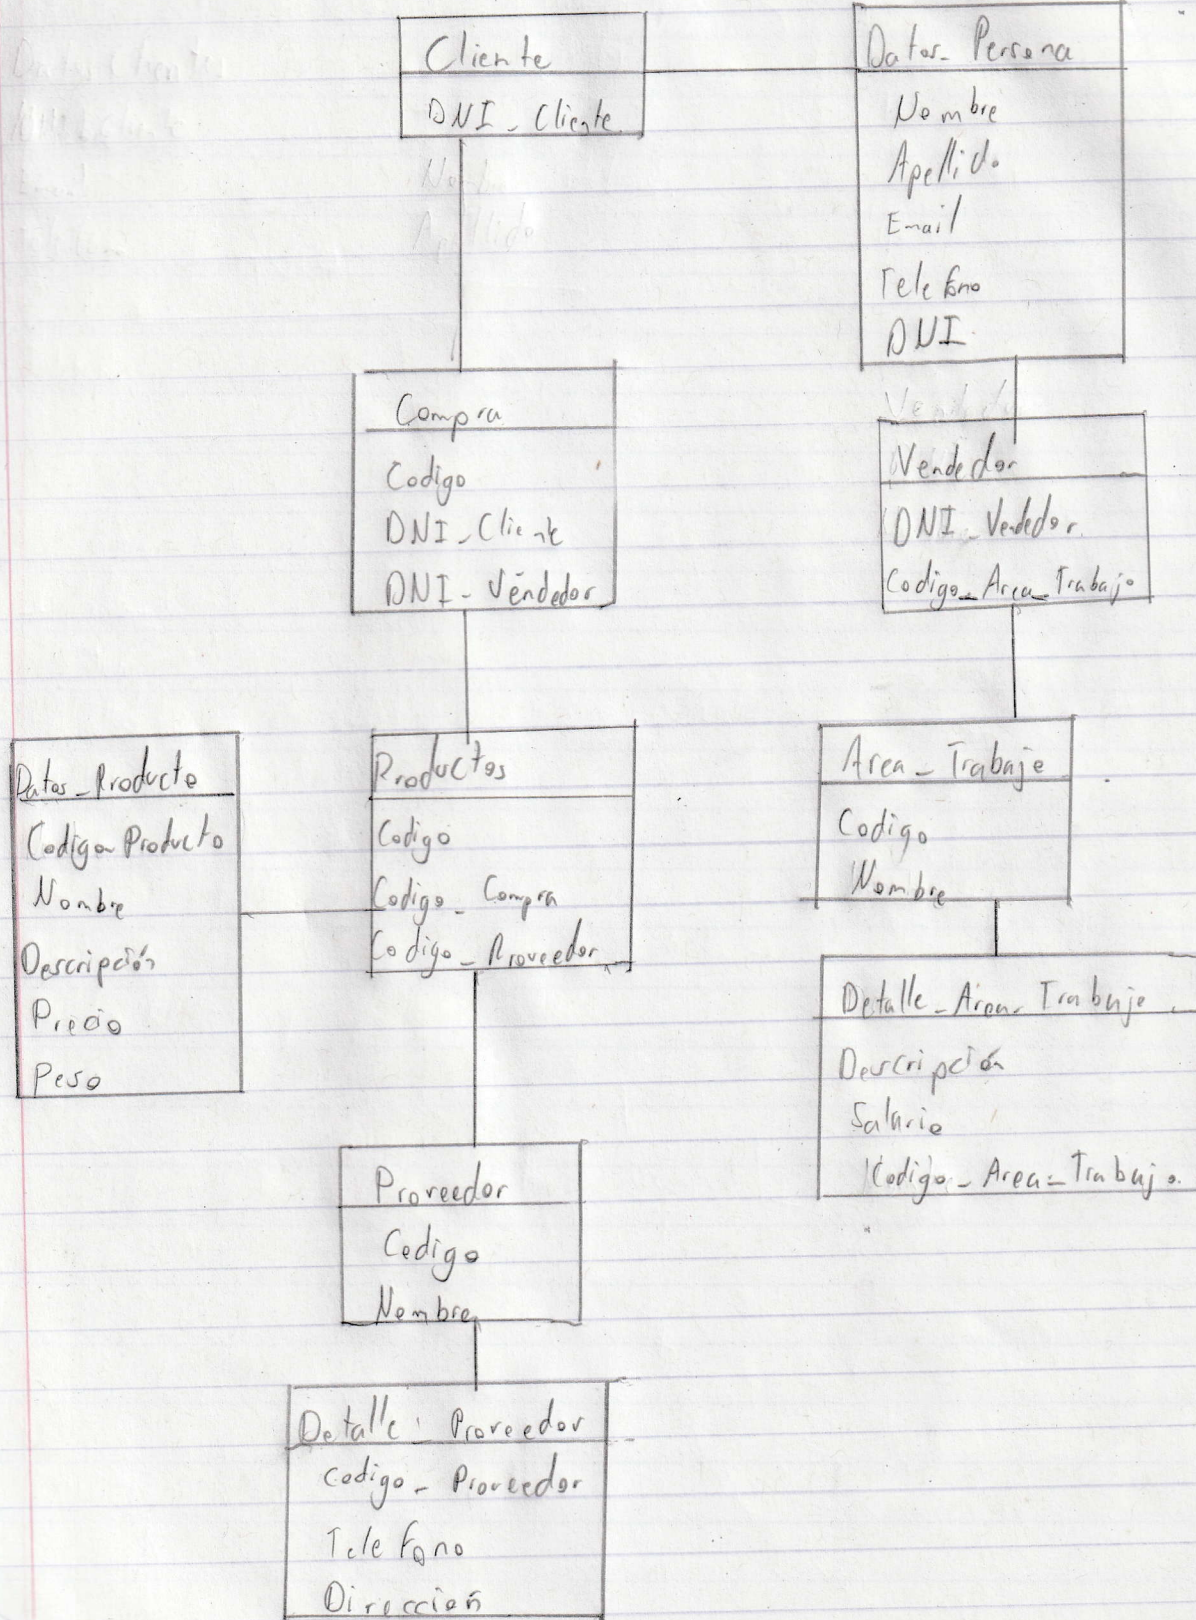 Cliente
DNI_Cliente
Datos_Persona
Nombre
Apellido
Email
Telefono
DNI
Compra
Codigo
DNI_Cliente
DNI_Vendedor
Vendedor
DNI_Vendedor
Codigo_Area_Trabajo
Datos_Producto
Codigo_Producto
Nombre
Descripción
Precio
Peso
Productos
Codigo
Codigo_Compra
Codigo_Proveedor
Area_Trabajo
Codigo
Nombre
Detalle_Area_Trabajo
Descripción
Salario
Codigo_Area_Trabajo
Proveedor
Codigo
Nombre
Detalle_Proveedor
Codigo_Proveedor
Telefono
Direccion